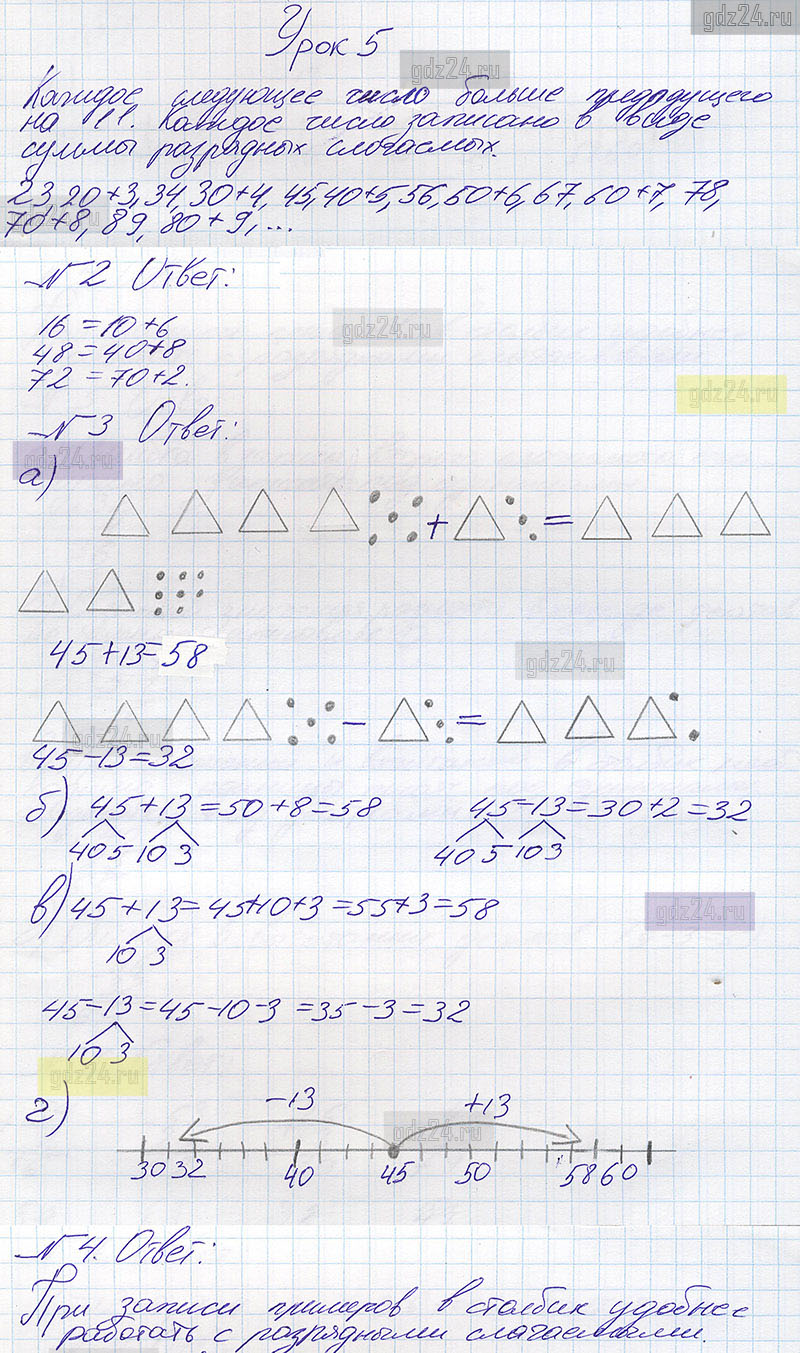 gdz24.ru
Урок 5
gdz24.ru
Каждое следующее число больше предыдущего
на 11. Каждое число записано в виде
суммы разрядных слогаемых.
23, 20+3, 34, 30+4, 45, 40+5, 56, 50+6, 67, 60+7, 78,
70+8, 89, 80+9, ...
№2 Ответ:
gdz24.ru
16 = 10+6
48 = 40+8
72 = 70+2.
gdz24.ru
№3 Ответ:
gdz24.ru
а)
+ =
45+13=58
gdz24.ru
- =
gdz24.ru
45-13=32
б) 45+13=50+8=58 45-13=30+2=32
40 5 10 3 40 5 10 3
в) 45+13=45+10+3=55+3=58
gdz24.ru
10 3
45-13=45-10-3=35-3=32
10 3
gdz24.ru
г) -13 +13
gdz24.ru
30 32 40 45 50 58 60
№4. Ответ:
При записи примеров в столбик удобнее
работать с разрядными слагаемыми.